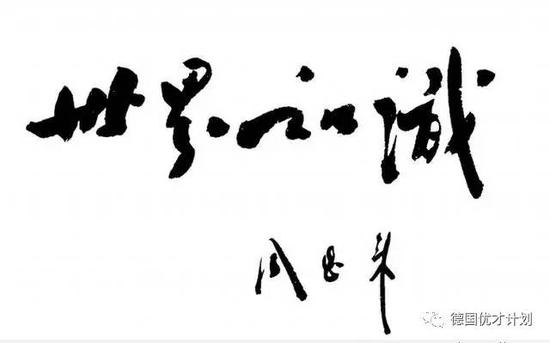 世界知識
周恩来
德国优才计划